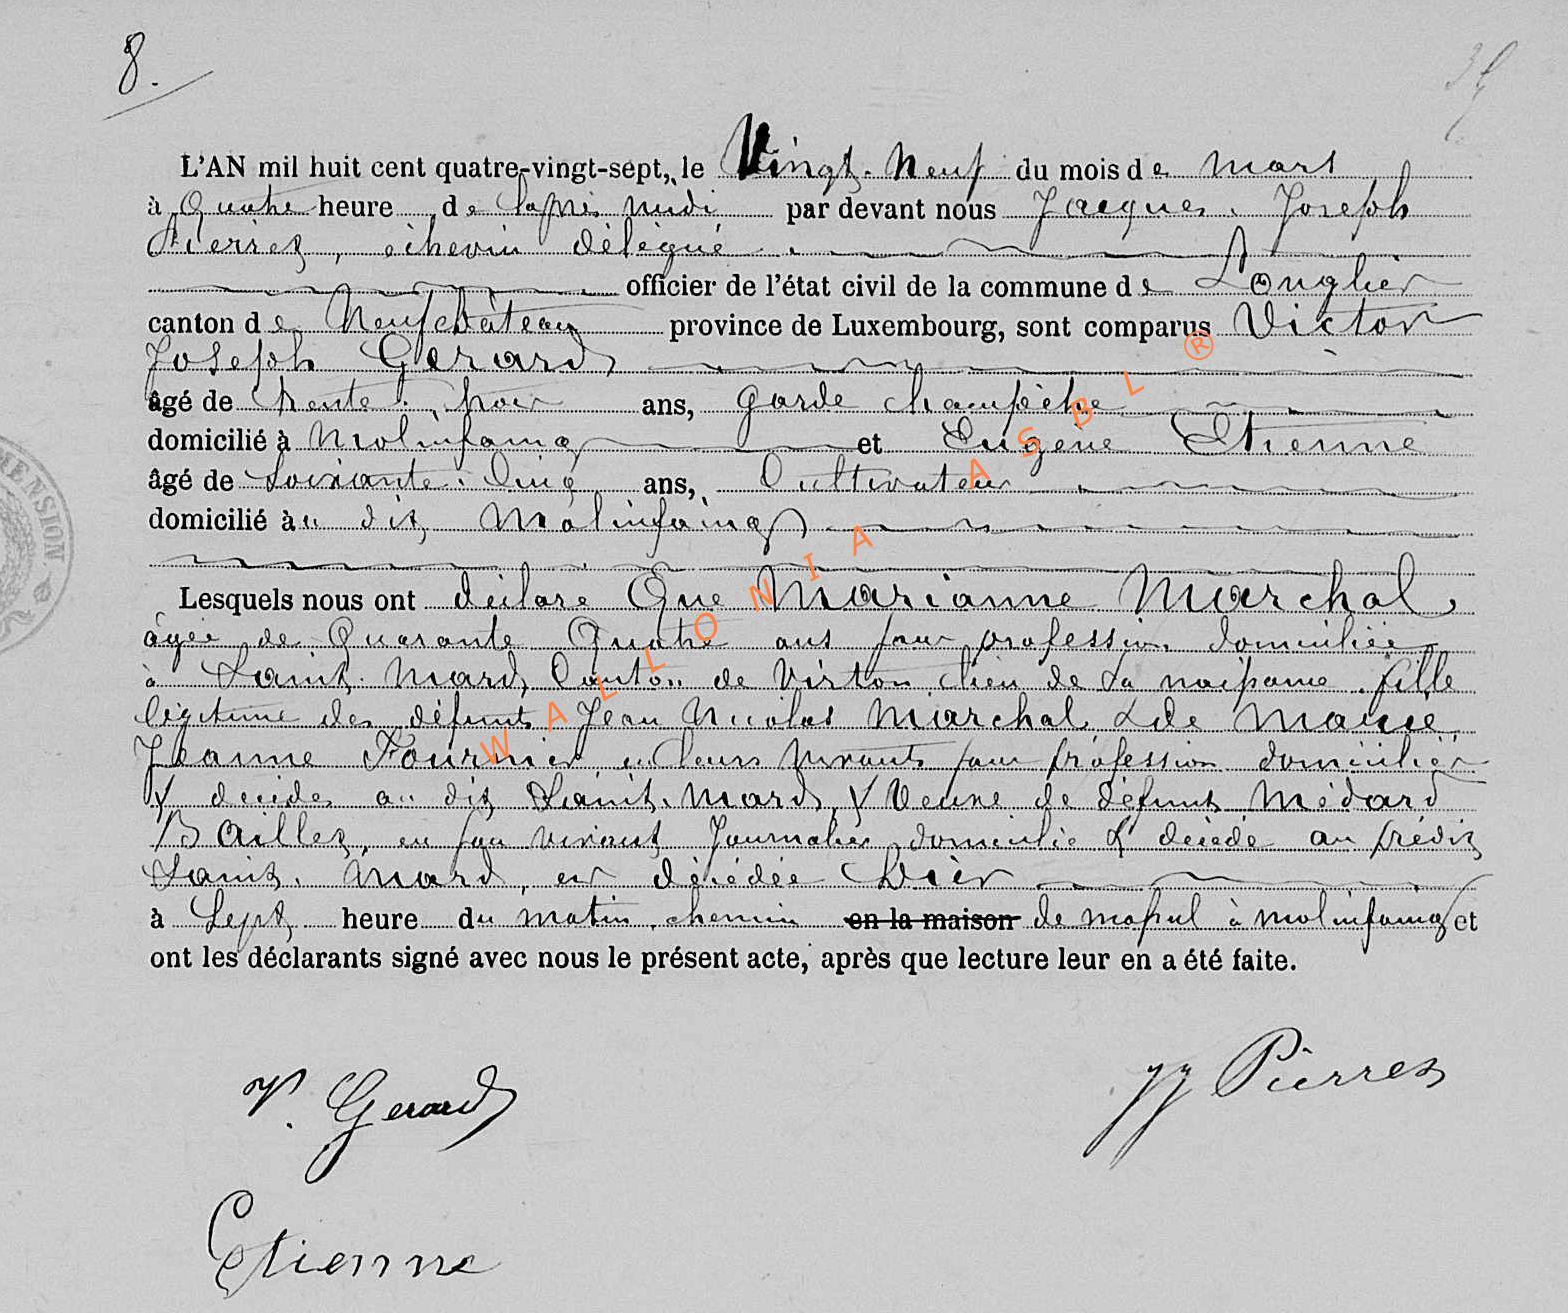 8.
L'AN mil huit cent quatre-vingt-sept, le Vingt-Neuf du mois de mars
à Quatre heure de l'après midi par devant nous Jacques Joseph
Pierres, échevin délégué
officier de l'état civil de la commune de Longlier
canton de Neufchâteau province de Luxembourg, sont comparus Victor
Joseph Gerard
âgé de trente trois ans, garde champêtre
domicilié à Molinfaing et Eugène Etienne
âgé de Soixante-Cinq ans, Cultivateur
domicilié au dit Molinfaing
Lesquels nous ont déclaré Que Marianne Marchal,
âgée de Quarante Quatre ans sans profession domiciliée
à Saint-Mard, Canton de Virton, lieu de sa naissance, fille
légitime des défunts Jean Nicolas Marchal & de Marie
Jeanne Fournier, en leurs vivants sans profession domiciliés
y décédés au dit Saint-Mard, Veuve de défunt Médard
Baillez, en son vivant Journalier domicilié & décédé au prédit
Saint-Mard, est décédée Hier
à Sept heure du matin, chemin en la maison de massul à Molinfaing et
ont les déclarants signé avec nous le présent acte, après que lecture leur en a été faite.
V. Gerard
JJ Pierres
Etienne
WALLONIA ASBL ®
HENSION